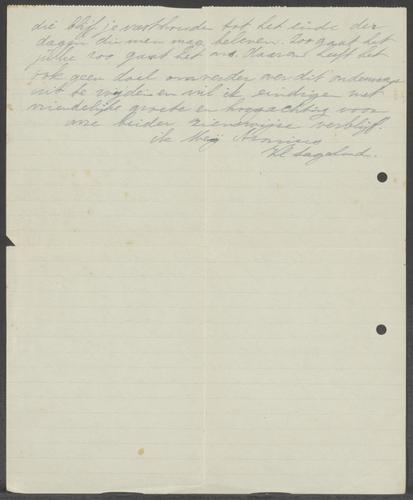 die blijf je vasthouden tot het einde der
dagen die men mag beleven. Zoo gaat het
jullie zoo gaat het ons. Daarom heeft het
ook geen doel om verder over dit onderwerp
uit te wijden en wil ik eindigen met
vriendelijke groete en hoogachting voor
onze beider zienswijze verblijf.
ik